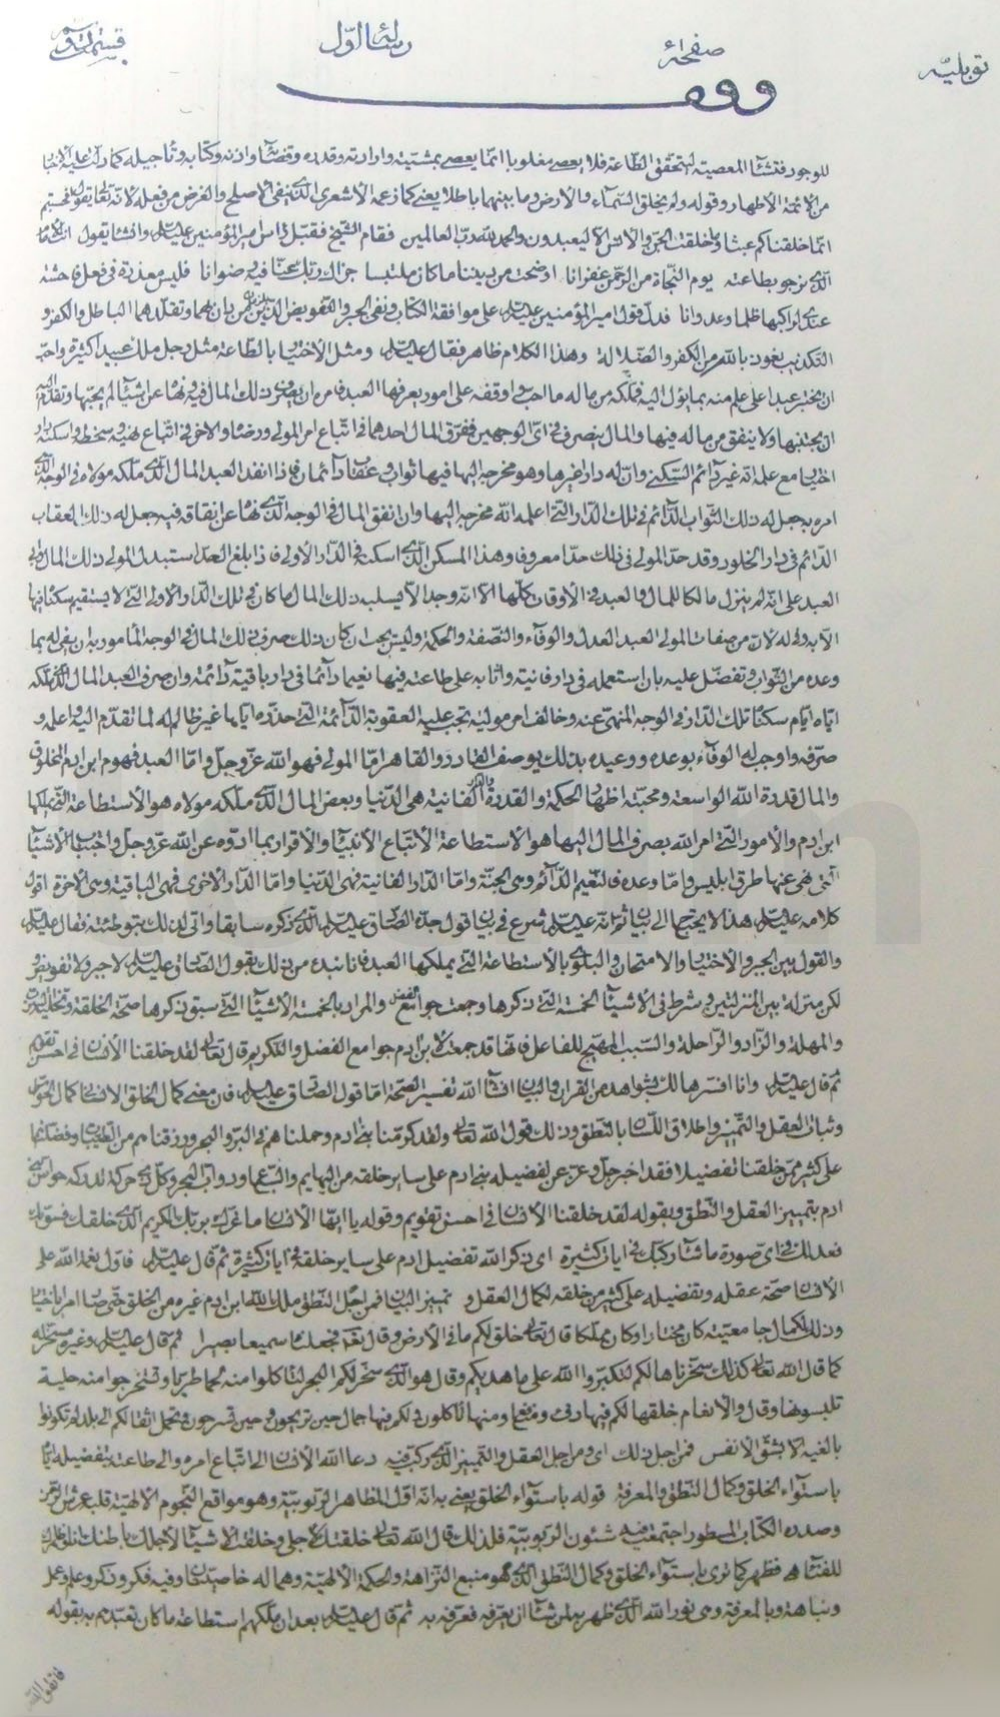 توبلیه
صفحه
رساله اول
وقف
للوجود فتشأ المعصية لتحقق الطاعة فلا يعصى مغلوبا انما يعصى بمشيته وارادته وقدره وقضائه واذنه وكتابه وتأجيله كما دلت عليه
من الائمة الاطهار وقوله ولم يخلق السماء والارض وما بينهما باطلا يعنى كما زعمه الاشعرى الذى نفى الاصلح والغرض من فعله لانه تعالى يقول افحسبتم
انما خلقناكم عبثا وما خلقت الجن والانس الا ليعبدون والحمد لله رب العالمين فقام الشيخ فقبل راس امير المؤمنين عليه السلام وانشا يقول انت الامام
الذى نرجو بطاعته يوم النجاة من الرحمن غفرانا اوضحت من ديننا ما كان ملتبسا جزاك ربك عنا فيه رضوانا فليس معذرة فى فعل فاحشة
عندى لراكبها ظلما وعدوانا فدل قول امير المؤمنين عليه السلام على موافقة الكتاب ونفى الجبر والتفويض الذين يلزمان من دان بهما وتقلدهما الباطل والكفر و
التكذيب نعوذ بالله من الكفر والضلالة وهذا الكلام ظاهر فقال عليه السلام ومثل الاختيار بالطاعة مثل رجل ملك عبيدا كثيرة واحب
ان يختبر عبدا على علم منه بما يؤل اليه فملكه من ماله ما احب و اوقفه على امور يعرفها العبد فامره ان يصرف ذلك المال فيها ونهاه عن اشياء لم يحبها وتقدم اليه
ان يجتنبها ولا ينفق من ماله فيها والمال يتصرف فى اى الوجهين ففرق المال احدهما فى اتباع امر المولى ورضاه والاخر فى اتباع نهيه وسخطه واسكنه دار
اختبار مع علمه انه غير دائم السكنى وان له دارا غيرها وهو مخرجه اليها فيها ثواب وعقاب دائمان فاذا انفد العبد المال الذى ملكه مولاه فى الوجه الذى
امره به جعل له ذلك الثواب الدائم فى تلك الدار التى اعلمه انه مخرجه اليها وان انفق المال فى الوجه الذى نهاه عن انفاقه فيه جعل له ذلك العقاب
الدائم فى دار الخلود وقد حد المولى فى ذلك حدا معروفا وهذا المسكن الذى اسكنه فى الدار الاولى فاذا بلغ الحد استبدل المولى ذلك المال وفى
العبد على انه لم ينزل مالكا للمال والعبد فى الاوقات كلها الا انه وعد الا يسلبه ذلك المال ما كان فى تلك الدار الاولى التى لا يستقيم سكناه فيها
الا به وفى له لان من صفات المولى العبد العدل والوفاء والنصفة والحكمة وليس يجب ان كان ذلك صرف ذلك المال فى الوجه المأمور به ان يفى له بما
وعده من الثواب وتفضل عليه بان استعمله فى دار فانية واثابه على طاعته فيها نعيما دائما فى دار باقية دائمة وان صرف العبد المال الذى ملكه
اياه ايام سكناه تلك الدار فى الوجه المنهى عنه وخالف امر موليه تجب عليه العقوبة الدائمة التى حذره اياها غير ظالم له لما تقدم اليه واعلمه و
صرفه واوجب له الوفاء بوعده ووعيده بذلك يوصف القادر والقاهر اما المولى فهو الله عز وجل واما العبد فهو ابن ادم المخلوق
والمال قدرة الله الواسعة ومحبته اظهار الحكمة والقدرة والدار الفانية هى الدنيا وبعض المال الذى ملكه مولاه هو الاستطاعة التى يملكها
ابن ادم والامور التى امر الله بصرف المال اليها هو الاستطاعة لاتباع الانبياء والاقرار بما ادوه عن الله عز وجل واجتناب الاشياء
التى نهى عنها طرق ابليس واما وعده فالنعيم الدائم وهى الجنة واما الدار الفانية فهى الدنيا واما الدار الاخرى فهى الباقية وهى الاخرة اقول
كلامه عليه السلام هذا لا يحتاج الى بيان ثم انه عليه السلام شرع فى بيان قول جده الصادق عليه السلام الذى ذكره سابقا واتى لذلك بتوطئة فقال عليه السلام
والقول بين الجبر والاختيار والامتحان والبلوى بالاستطاعة التى يملكها العبد فانا نبدء من ذلك بقول الصادق عليه السلام لا جبر ولا تفويض و
لكن منزلة بين المنزلتين وشرط فى الاشياء الخمسة التى ذكرها وجمعت جوامع الفضل والمراد بالخمسة الاشياء التى سبق ذكرها صحة الخلقة وتخلية السرب
والمهلة والزاد والراحلة والسبب المهيج للفاعل فانها قد جمعت لابن ادم جوامع الفضل والتكريم قال تعالى لقد خلقنا الانسان فى احسن تقويم
ثم قال عليه السلام وانا افسرها لك بشواهد من القران والبيان انشاء الله تفسير الصحة اما قول الصادق عليه السلام فان معنى كمال الخلق للانسان كمال الحواس
وثبات العقل والتمييز واطلاق اللسان بالنطق وذلك قول الله تعالى ولقد كرمنا بنى ادم وحملناهم فى البر والبحر ورزقناهم من الطيبات وفضلناهم
على كثير ممن خلقنا تفضيلا فقد اخبر جل وعز عن تفضيله بنى ادم على ساير خلقه من البهايم والسباع ودواب البحر وكل ذى حركة تدركه حواس بنى
ادم بتمييز العقل والنطق وبقوله لقد خلقنا الانسان فى احسن تقويم وقوله يا ايها الانسان ما غرك بربك الكريم الذى خلقك فسويك
فعدلك فى اى صورة ما شاء ركبك فى ايات كثيرة اى ذكر الله تفضيل ادم على ساير خلقه فى ايات كثيرة ثم قال عليه السلام فاول نعمة الله على
الانسان صحة عقله وتفضيله على كثير من خلقه لكمال العقل و تمييز البيان فمن اجل النطق ملك الله ابن ادم غيره من الخلق حتى صار امرا ناهيا
وذلك لكمال جامعيته كان مختارا وكان مملكا قال تعالى خلق لكم ما فى الارض وقال تعالى فجعلناه سميعا بصيرا ثم قال عليه السلام وغيره مسخر له
كما قال الله تعالى كذلك سخرناها لكم لتكبروا الله على ما هديكم وقال هو الذى سخر لكم البحر لتاكلوا منه لحما طريا وتستخرجوا منه حلية
تلبسونها وقال والانعام خلقها لكم فيها دفء ومنافع ومنها تاكلون ولكم فيها جمال حين تريحون وحين تسرحون وتحمل اثقالكم الى بلد لم تكونوا
بالغيه الا بشق الانفس فمن اجل ذلك اى ومن اجل العقل والتمييز الذى ركب فيه دعا الله الانسان الى اتباع امره والى طاعته بتفضيله اياه
باستواء الخلق وكمال النطق والمعرفة قوله باستواء الخلق يعنى به انه اول المظاهر الربوبية وهو مواقع النجوم الالهية قلبه عرش الرحمن
وصدره الكتاب المسطور اجتمعت فيه شئون الربوبية فلذلك قال الله تعالى خلقتك لاجلى وخلقت الاشياء لاجلك
فظهر كما ترى باستواء الخلق وكمال النطق الذى هو منبع النزاهة والحكمة الالهية وهما له خاصيتان وفيه فكر وذكر وعلم وعمل
ونباهة وبالمعرفة وهى نور الله الذى ظهر به لمن شاء ان يعرفه فعرفه به ثم قال عليه السلام بعد ان ملكهم استطاعة ما كان تعبدهم به بقوله
فاتقوا الله